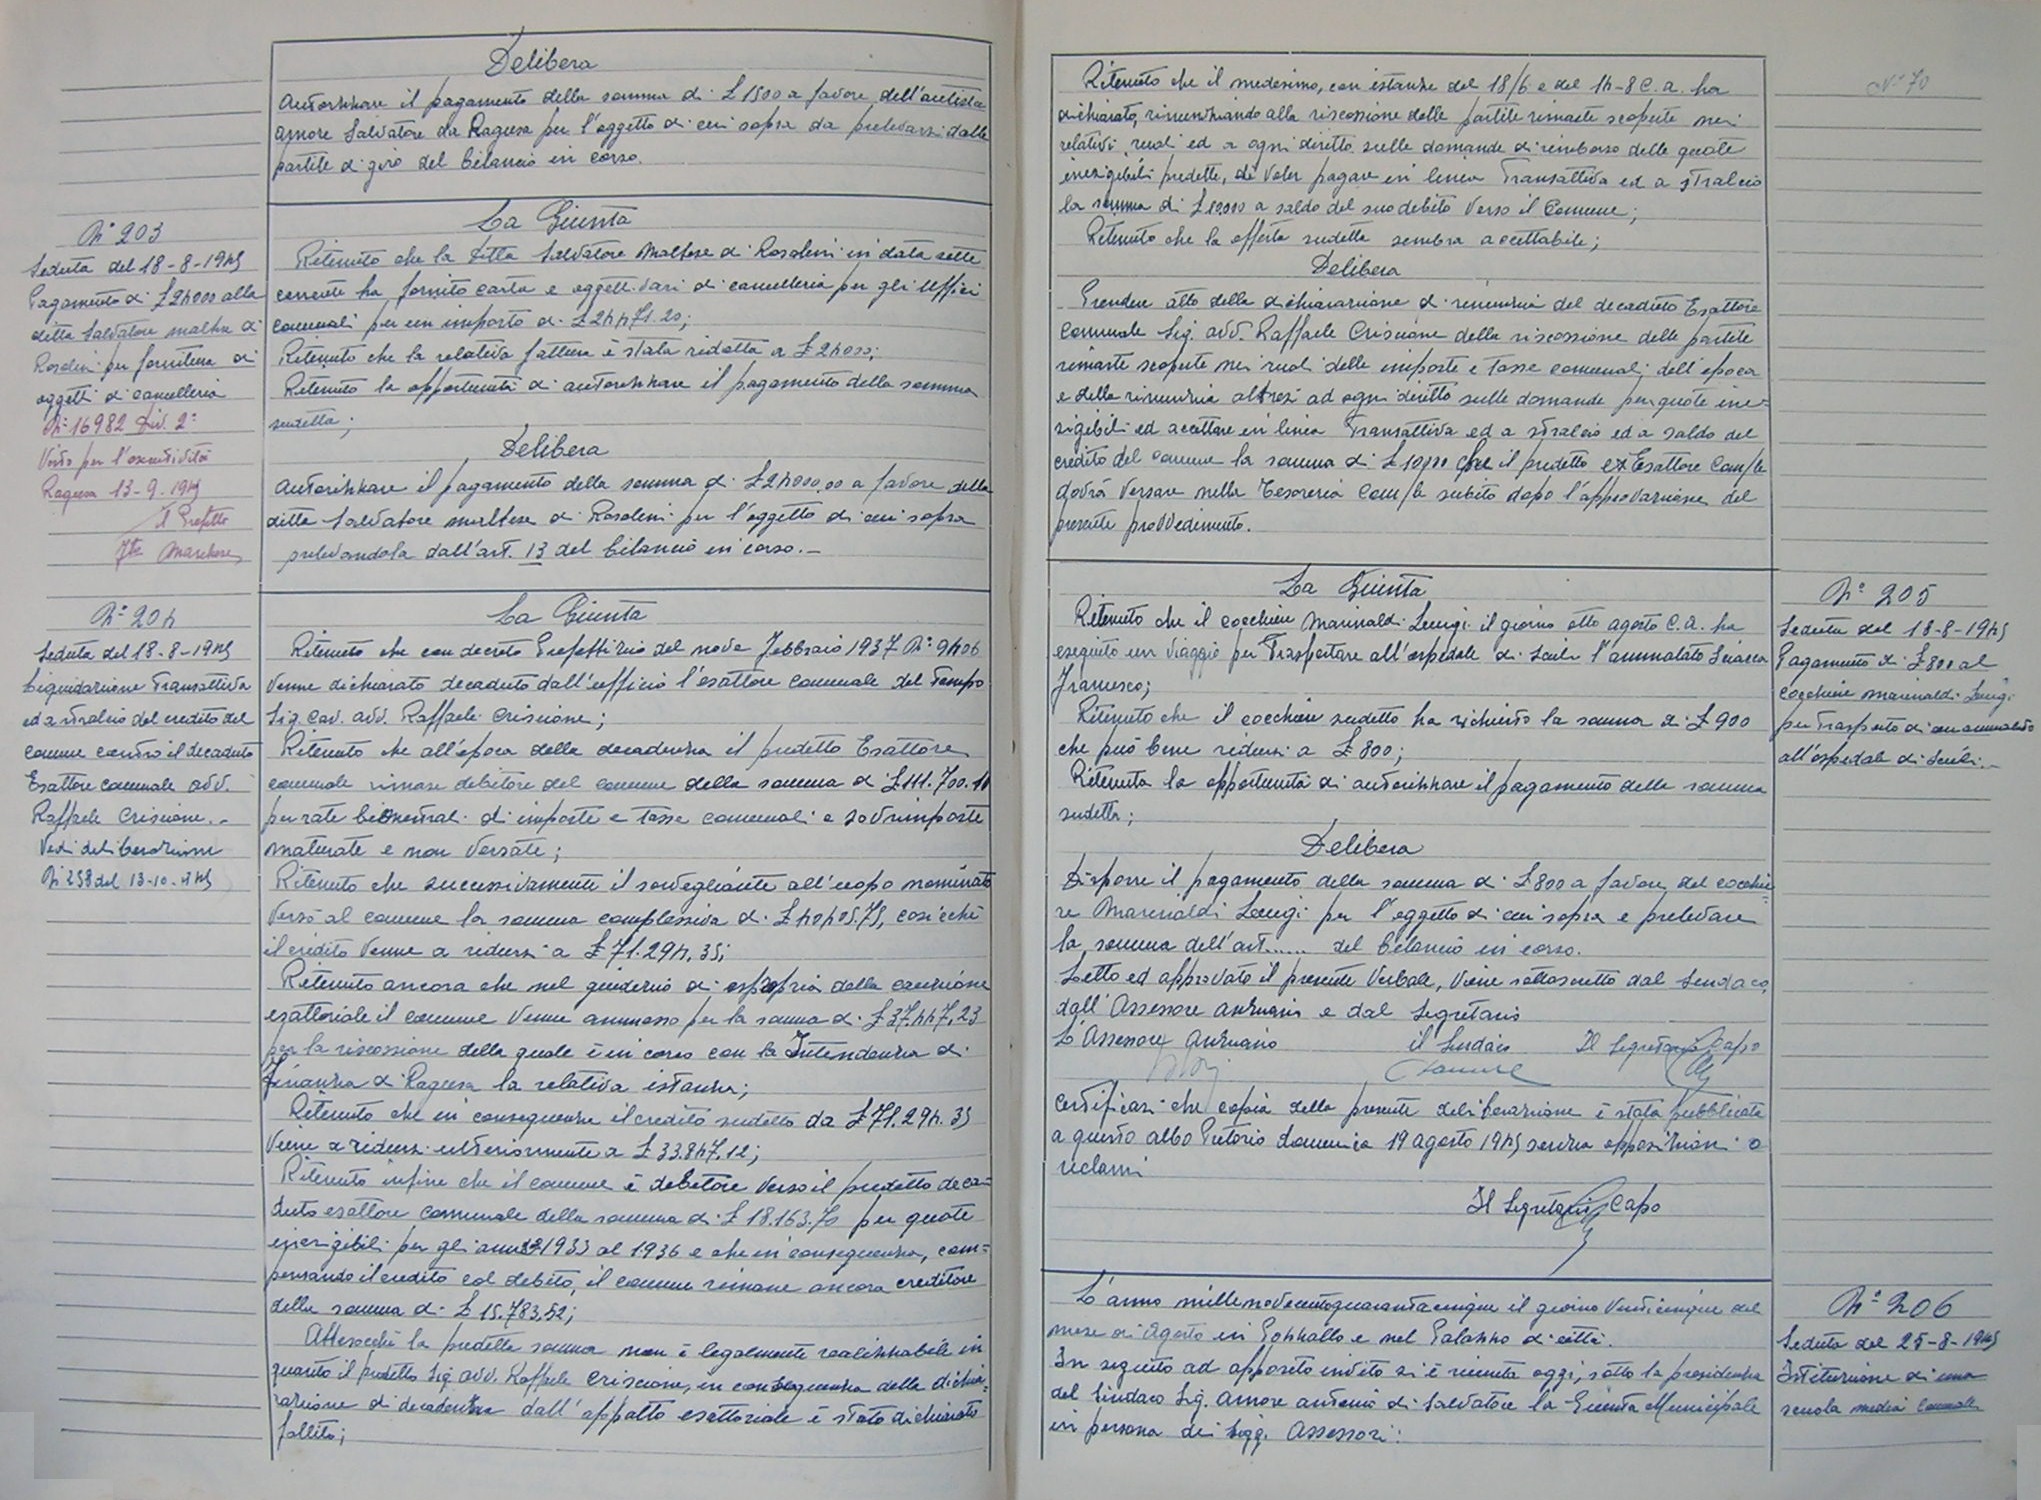 Delibera
Autorizzare il pagamento della somma di £ 1500 a favore dell'autista
Amore Salvatore da Ragusa per l'oggetto di cui sopra da prelevarsi dalle
partite di giro del bilancio in corso.
N° 203
Seduta del 18-8-1945
Pagamento di £ 24000 alla
ditta Salvatore Maltese di
Rosolini per fornitura di
oggetti di cancelleria
N° 16982 Div. 2ª
Visto per l'esecutività
Ragusa 13-9-1945
Il Prefetto
La Giunta
Ritenuto che la Ditta Salvatore Maltese di Rosolini in data sette
corrente ha fornito carta e oggetti vari di cancelleria per gli Uffici
comunali per un importo di £ 24471.20;
Ritenuto che la relativa fattura è stata ridotta a £ 24000;
Ritenuto la opportunità di autorizzare il pagamento della somma
sudetta;
Delibera
Autorizzare il pagamento della somma di £ 24000,00 a favore della
ditta Salvatore Maltese di Rosolini per l'oggetto di cui sopra
prelevandola dall'art. 13 del bilancio in corso.-
N° 204
Seduta del 18-8-1945
Liquidazione Transattiva
ed a stralcio del credito del
comune contro il decaduto
Esattore comunale avv.
Raffaele Criscione.-
Vedi deliberazione
N° 258 del 13-10-945
La Giunta
Ritenuto che con decreto Prefettizio del nove Febbraio 1937 N° 9406
venne dichiarato decaduto dall'ufficio l'esattore comunale del tempo
Sig. Cav. avv. Raffaele Criscione;
Ritenuto che all'epoca della decadenza il predetto Esattore
comunale rimase debitore del comune della somma di £ 111.700.10
per rate bimestrali di imposte e tasse comunali e sovrimposte
maturate e non versate;
Ritenuto che successivamente il sorvegliante all'uopo nominato
versò al comune la somma complessiva di £ 40405.75, cosicchè
il credito venne a ridursi a £ 71.294,35;
Ritenuto ancora che nel giudizio di esproprio della cauzione
esattoriale il comune venne ammesso per la somma di £ 37.447,23
per la riscossione della quale è in corso con la Intendenza di
Finanza di Ragusa la relativa istanza;
Ritenuto che in conseguenza il credito sudetto da £ 71.294.35
viene a ridursi ulteriormente a £ 33.847,12;
Ritenuto infine che il comune è debitore verso il predetto deca-
duto esattore comunale della somma di £ 18.163.70 per quote
inesigibili per gli anni 1933 al 1936 e che in conseguenza, com=
pensando il credito col debito, il comune rimane ancora creditore
della somma di £ 15.783,52;
Attesocchè la predetta somma non è legalmente realizzabile in
quanto il predetto Sig. avv. Raffaele Criscione, in conseguenza della dichia-
razione di decadenza dall'appalto esattoriale è stato dichiarato
fallito;
N° 70
Ritenuto che il medesimo, con istanze del 18/6 e del 14-8 c.a. ha
dichiarato, rinunziando alla riscossione delle partite rimaste scoperte nei
relativi ruoli ed a ogni diritto sulle domande di rimborso delle quote
inesigibili predette, di voler pagare in linea Transattiva ed a stralcio
la somma di £ 10.000 a saldo del suo debito verso il Comune;
Ritenuto che la offerta sudetta sembra accettabile;
Delibera
Prendere atto della dichiarazione di rinunzia del decaduto Esattore
Comunale Sig. avv. Raffaele Criscione della riscossione delle partite
rimaste scoperte nei ruoli delle imposte e tasse comunali dell'epoca
e della rinunzia altresì ad ogni diritto sulle domande per quote ine=
sigibili ed accettare in linea Transattiva ed a stralcio ed a saldo del
credito del comune la somma di £ 10000 che il predetto ex Esattore Com/le
dovrà versare nella Tesoreria Com/le subito dopo l'approvazione del
presente provvedimento.
La Giunta
Ritenuto che il cocchiere Marinaldi Luigi il giorno otto agosto c.a. ha
eseguito un viaggio per Trasportare all'ospedale di Scicli l'ammalato Sciacca
Francesco;
Ritenuto che il cocchiere sudetto ha richiesto la somma di £ 900
che può bene ridursi a £ 800;
Ritenuta la opportunità di autorizzare il pagamento della somma
sudetta;
Delibera
Disporre il pagamento della somma di £ 800 a favore del cocchie=
re Marinaldi Luigi per l'oggetto di cui sopra e prelevare
la somma dell'art...... del bilancio in corso.
Letto ed approvato il presente Verbale, viene sottoscritto dal Sindaco,
dall'Assessore anziano e dal Segretario
L'Assessore Anziano il Sindaco Il Segretario Capo
Certificasi che copia della presente deliberazione è stata pubblicata
a questo albo Pretorio domenica 19 agosto 1945 senza opposizioni o
reclami
Il Segretario Capo
N° 205
Seduta del 18-8-1945
Pagamento di £ 800 al
cocchiere Marinaldi Luigi
per trasporto di un ammalato
all'ospedale di Scicli.-
L'anno millenovecentoquarantacinque il giorno venticinque del
mese di Agosto in Pozzallo e nel Palazzo di città.
In seguito ad apposito invito si è riunita oggi, sotto la presidenza
del Sindaco Sig. Amore Antonio di Salvatore la Giunta Municipale
in persona dei Sigg. Assessori:
N° 206
Seduta del 25-8-1945
Istituzione di una
scuola media Comunale